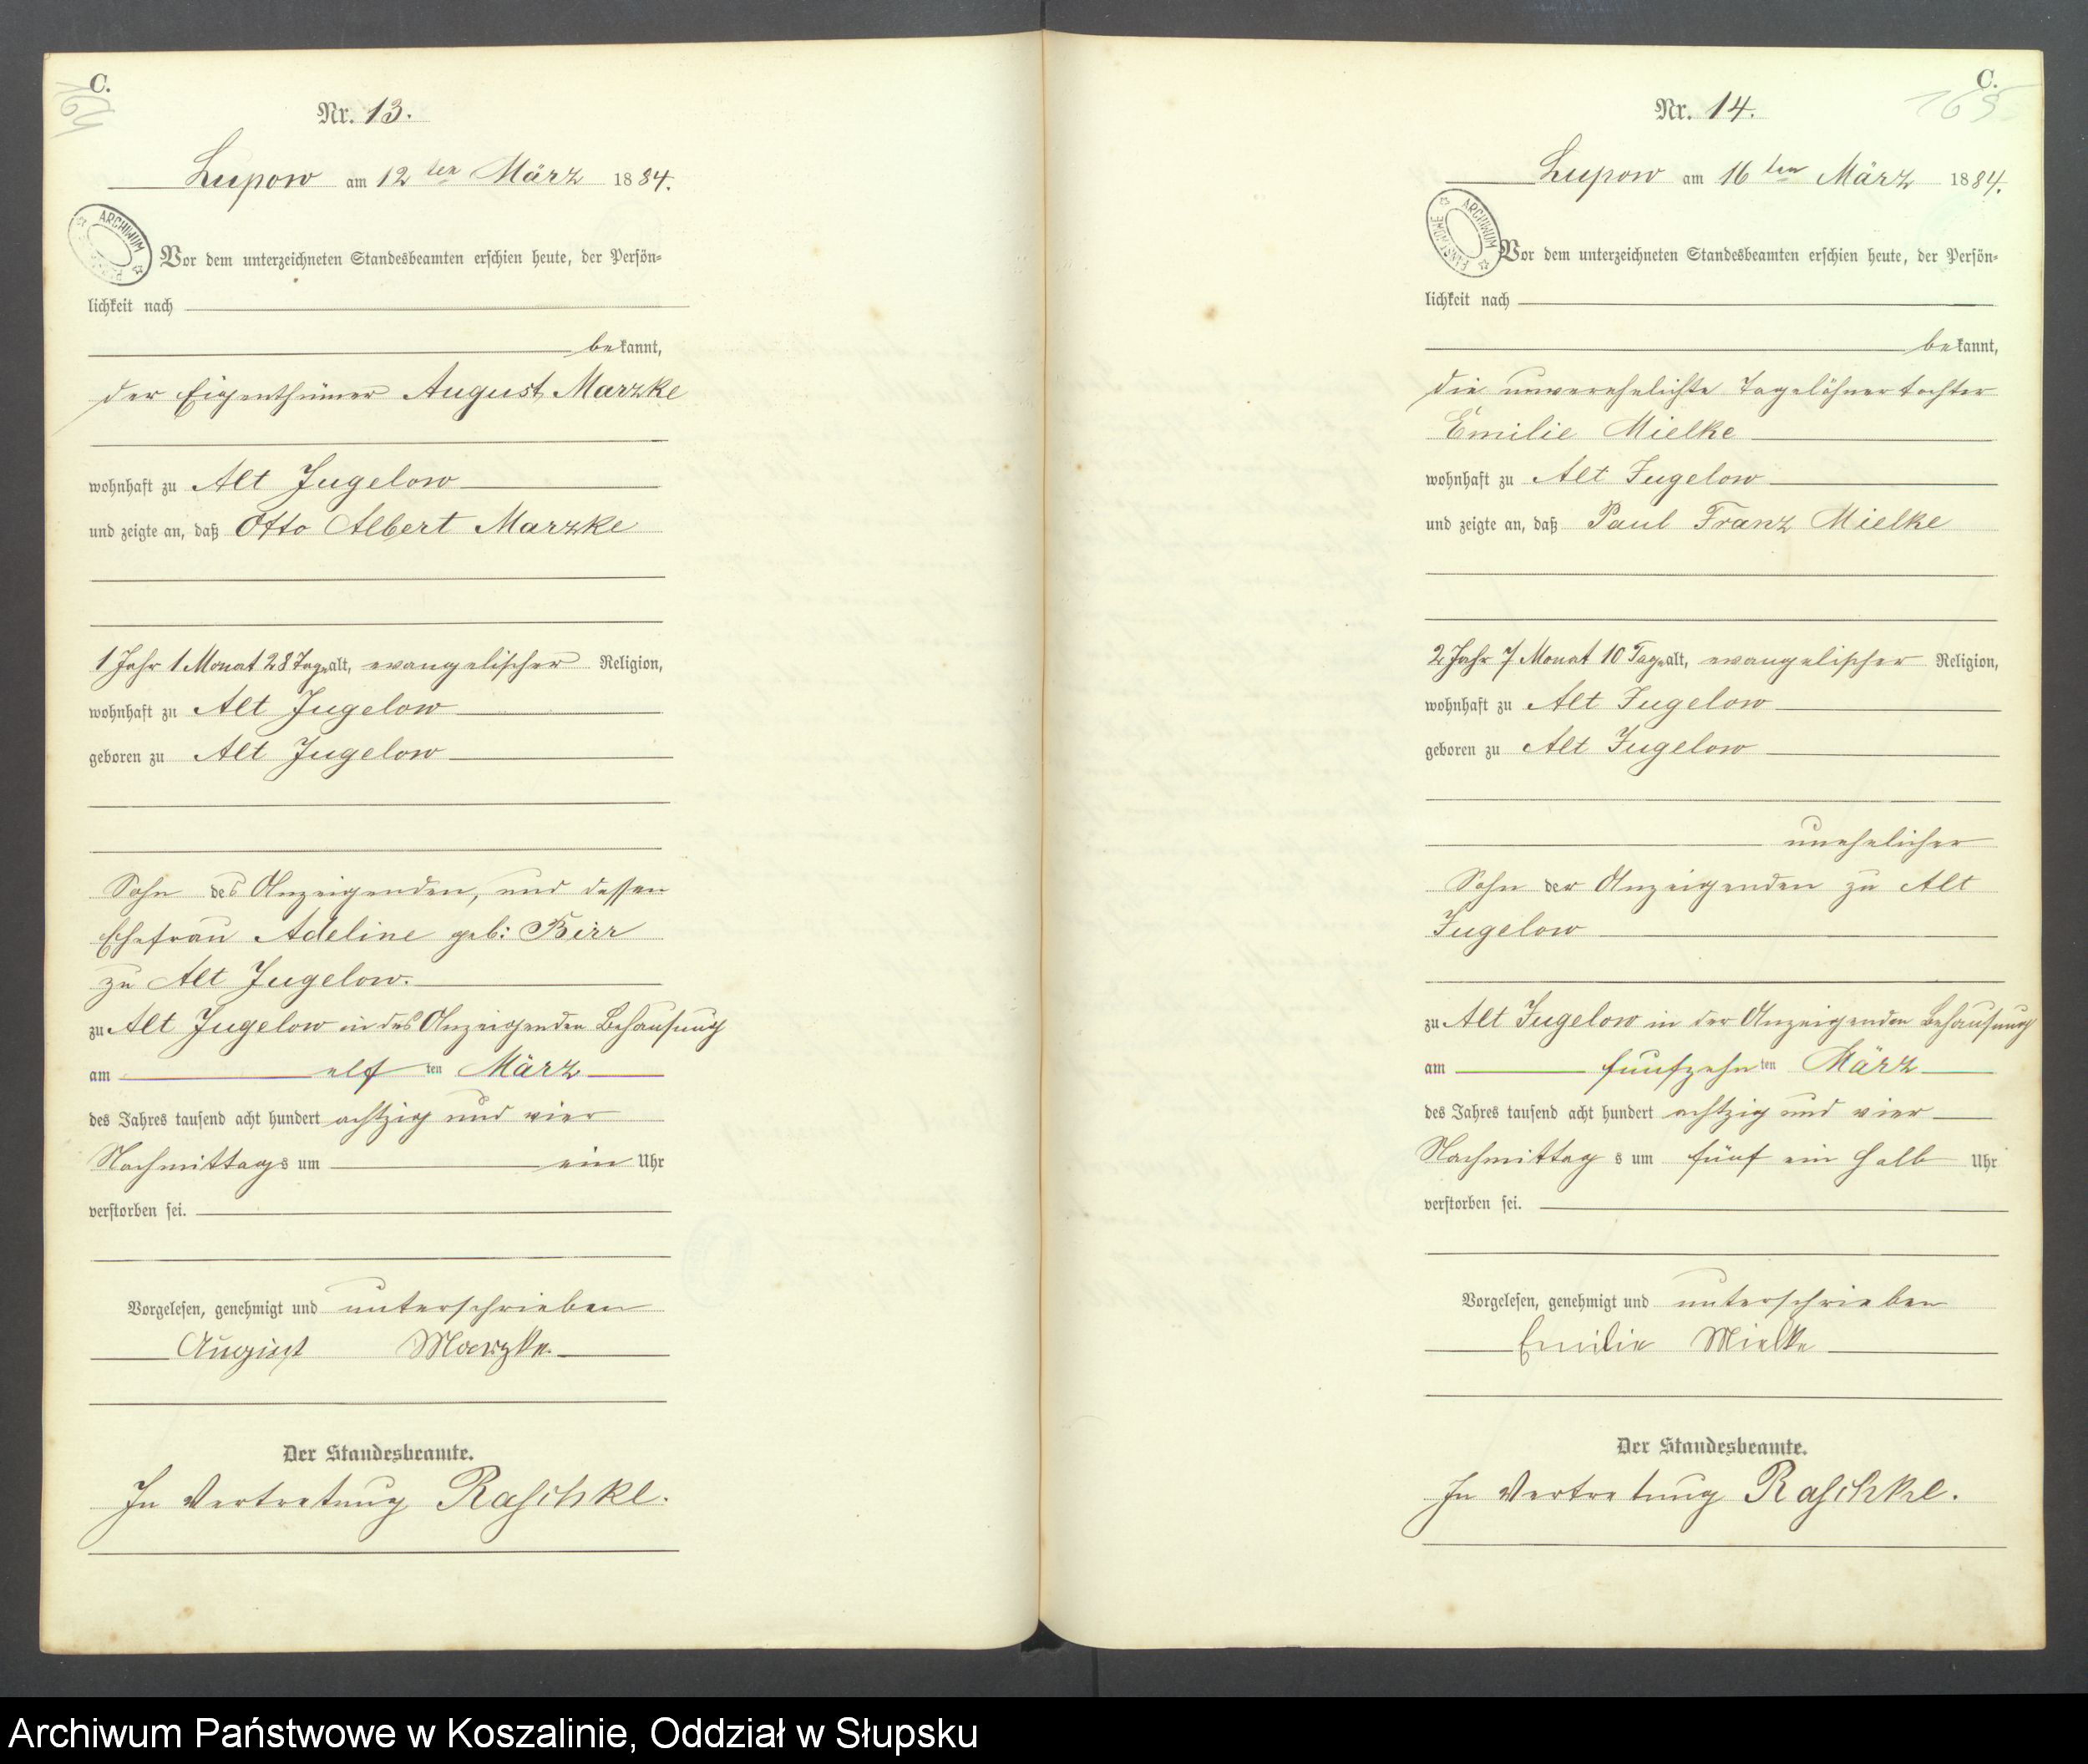 C.
164
Nr. 13.
Lupow am 12ten März 1884.
ARCHIWUM
Vor dem unterzeichneten Standesbeamten erschien heute, der Persön=
lichkeit nach
bekannt,
der Eigenthümer August Marzke
wohnhaft zu Alt Jugelow
und zeigte an, daß Otto Albert Marzke
1 Jahr 1 Monat 28 Tage alt, evangelischer Religion,
wohnhaft zu Alt Jugelow
geboren zu Alt Jugelow
Sohn des Anzeigenden, und dessen
Ehefrau Adeline geb: Birr
zu Alt Jugelow.
zu Alt Jugelow in des Anzeigenden Behausung
am elften März
des Jahres tausend acht hundert achtzig und vier
Nachmittags um ein Uhr
verstorben sei.
Vorgelesen, genehmigt und unterschrieben
August Marzke.
Der Standesbeamte.
In Vertretung Raschke.
C.
165
Nr. 14.
Lupow am 16ten März 1884.
ARCHIWUM PAŃSTWOWE
Vor dem unterzeichneten Standesbeamten erschien heute, der Persön=
lichkeit nach
bekannt,
die unverehelichte Tagelöhnertochter
Emilie Mielke
wohnhaft zu Alt Jugelow
und zeigte an, daß Paul Franz Mielke
2 Jahr 7 Monat 10 Tage alt, evangelischer Religion,
wohnhaft zu Alt Jugelow
geboren zu Alt Jugelow
unehelicher
Sohn der Anzeigenden zu Alt
Jugelow
zu Alt Jugelow in der Anzeigenden Behausung
am funfzehnten März
des Jahres tausend acht hundert achtzig und vier
Nachmittags um fünf ein halb Uhr
verstorben sei.
Vorgelesen, genehmigt und unterschrieben
Emilie Mielke
Der Standesbeamte.
In Vertretung Raschke.
Archiwum Państwowe w Koszalinie, Oddział w Słupsku